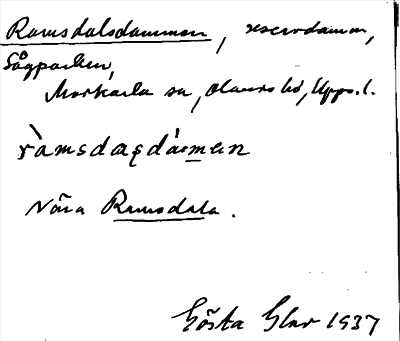 Ramsdalsdammen, reservdamm,
Sågparken,
Morkarla sn, Olands hd, Upps. l.
ràmsdasdámən
Nära Ramsdala.
Gösta Glar 1937